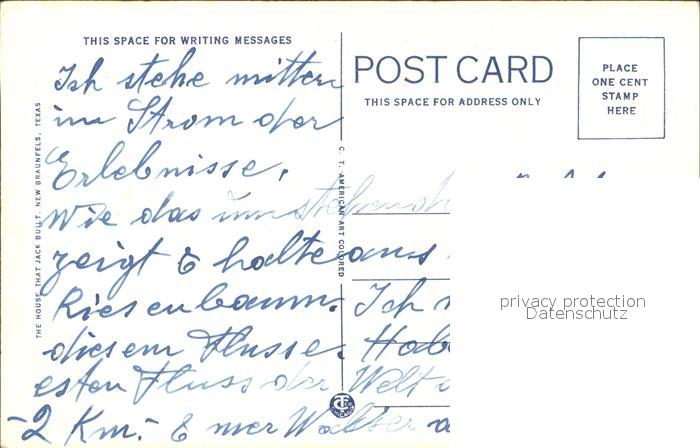 THIS SPACE FOR WRITING MESSAGES
POST CARD
THIS SPACE FOR ADDRESS ONLY
PLACE
ONE CENT
STAMP
HERE
THE HOUSE THAT JACK BUILT, NEW BRAUNFELS, TEXAS
C. T. AMERICAN ART COLORED
Ich stehe mitten
im Strom der
Erlebnisse.
Wie das umstehende
zeigt & halte aus
Riesenbaum. Ich
diesem Flusse.
esten Fluss der Welt
-2 Km.- &
privacy protection
Datenschutz